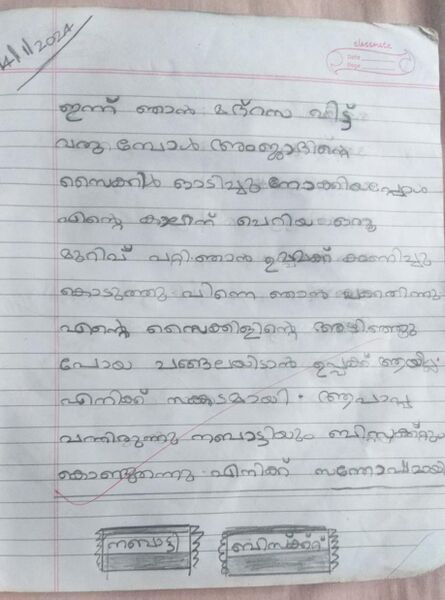 14/11/2024
classmate
Date
Page
ഇന്ന് ഞാൻ മദ്റസ വിട്ട്
വരുമ്പോൾ അംജാദിന്റെ
സൈക്കിൾ ഓടിച്ചു നോക്കിയപ്പോൾ
എന്റെ കാലിന് ചെറിയ ഒരു
മുറിവ് പറ്റി ഞാൻ ഉമ്മാക്ക് കാണിച്ചു
കൊടുത്തു പിന്നെ ഞാൻ
എന്റെ സൈക്കിളിന്റെ അഴിഞ്ഞു
പോയ ചങ്ങലയിടാൻ ഉപ്പക്ക് ആയില്ല
എനിക്ക് സങ്കടമായി. ആപാപ്പ
വന്നിരുന്നു നബാട്ടിയും ബിസ്ക്കറ്റും
കൊണ്ടുതന്നു എനിക്ക് സന്തോഷമായി
നബാട്ടി
ബിസ്ക്കറ്റ്